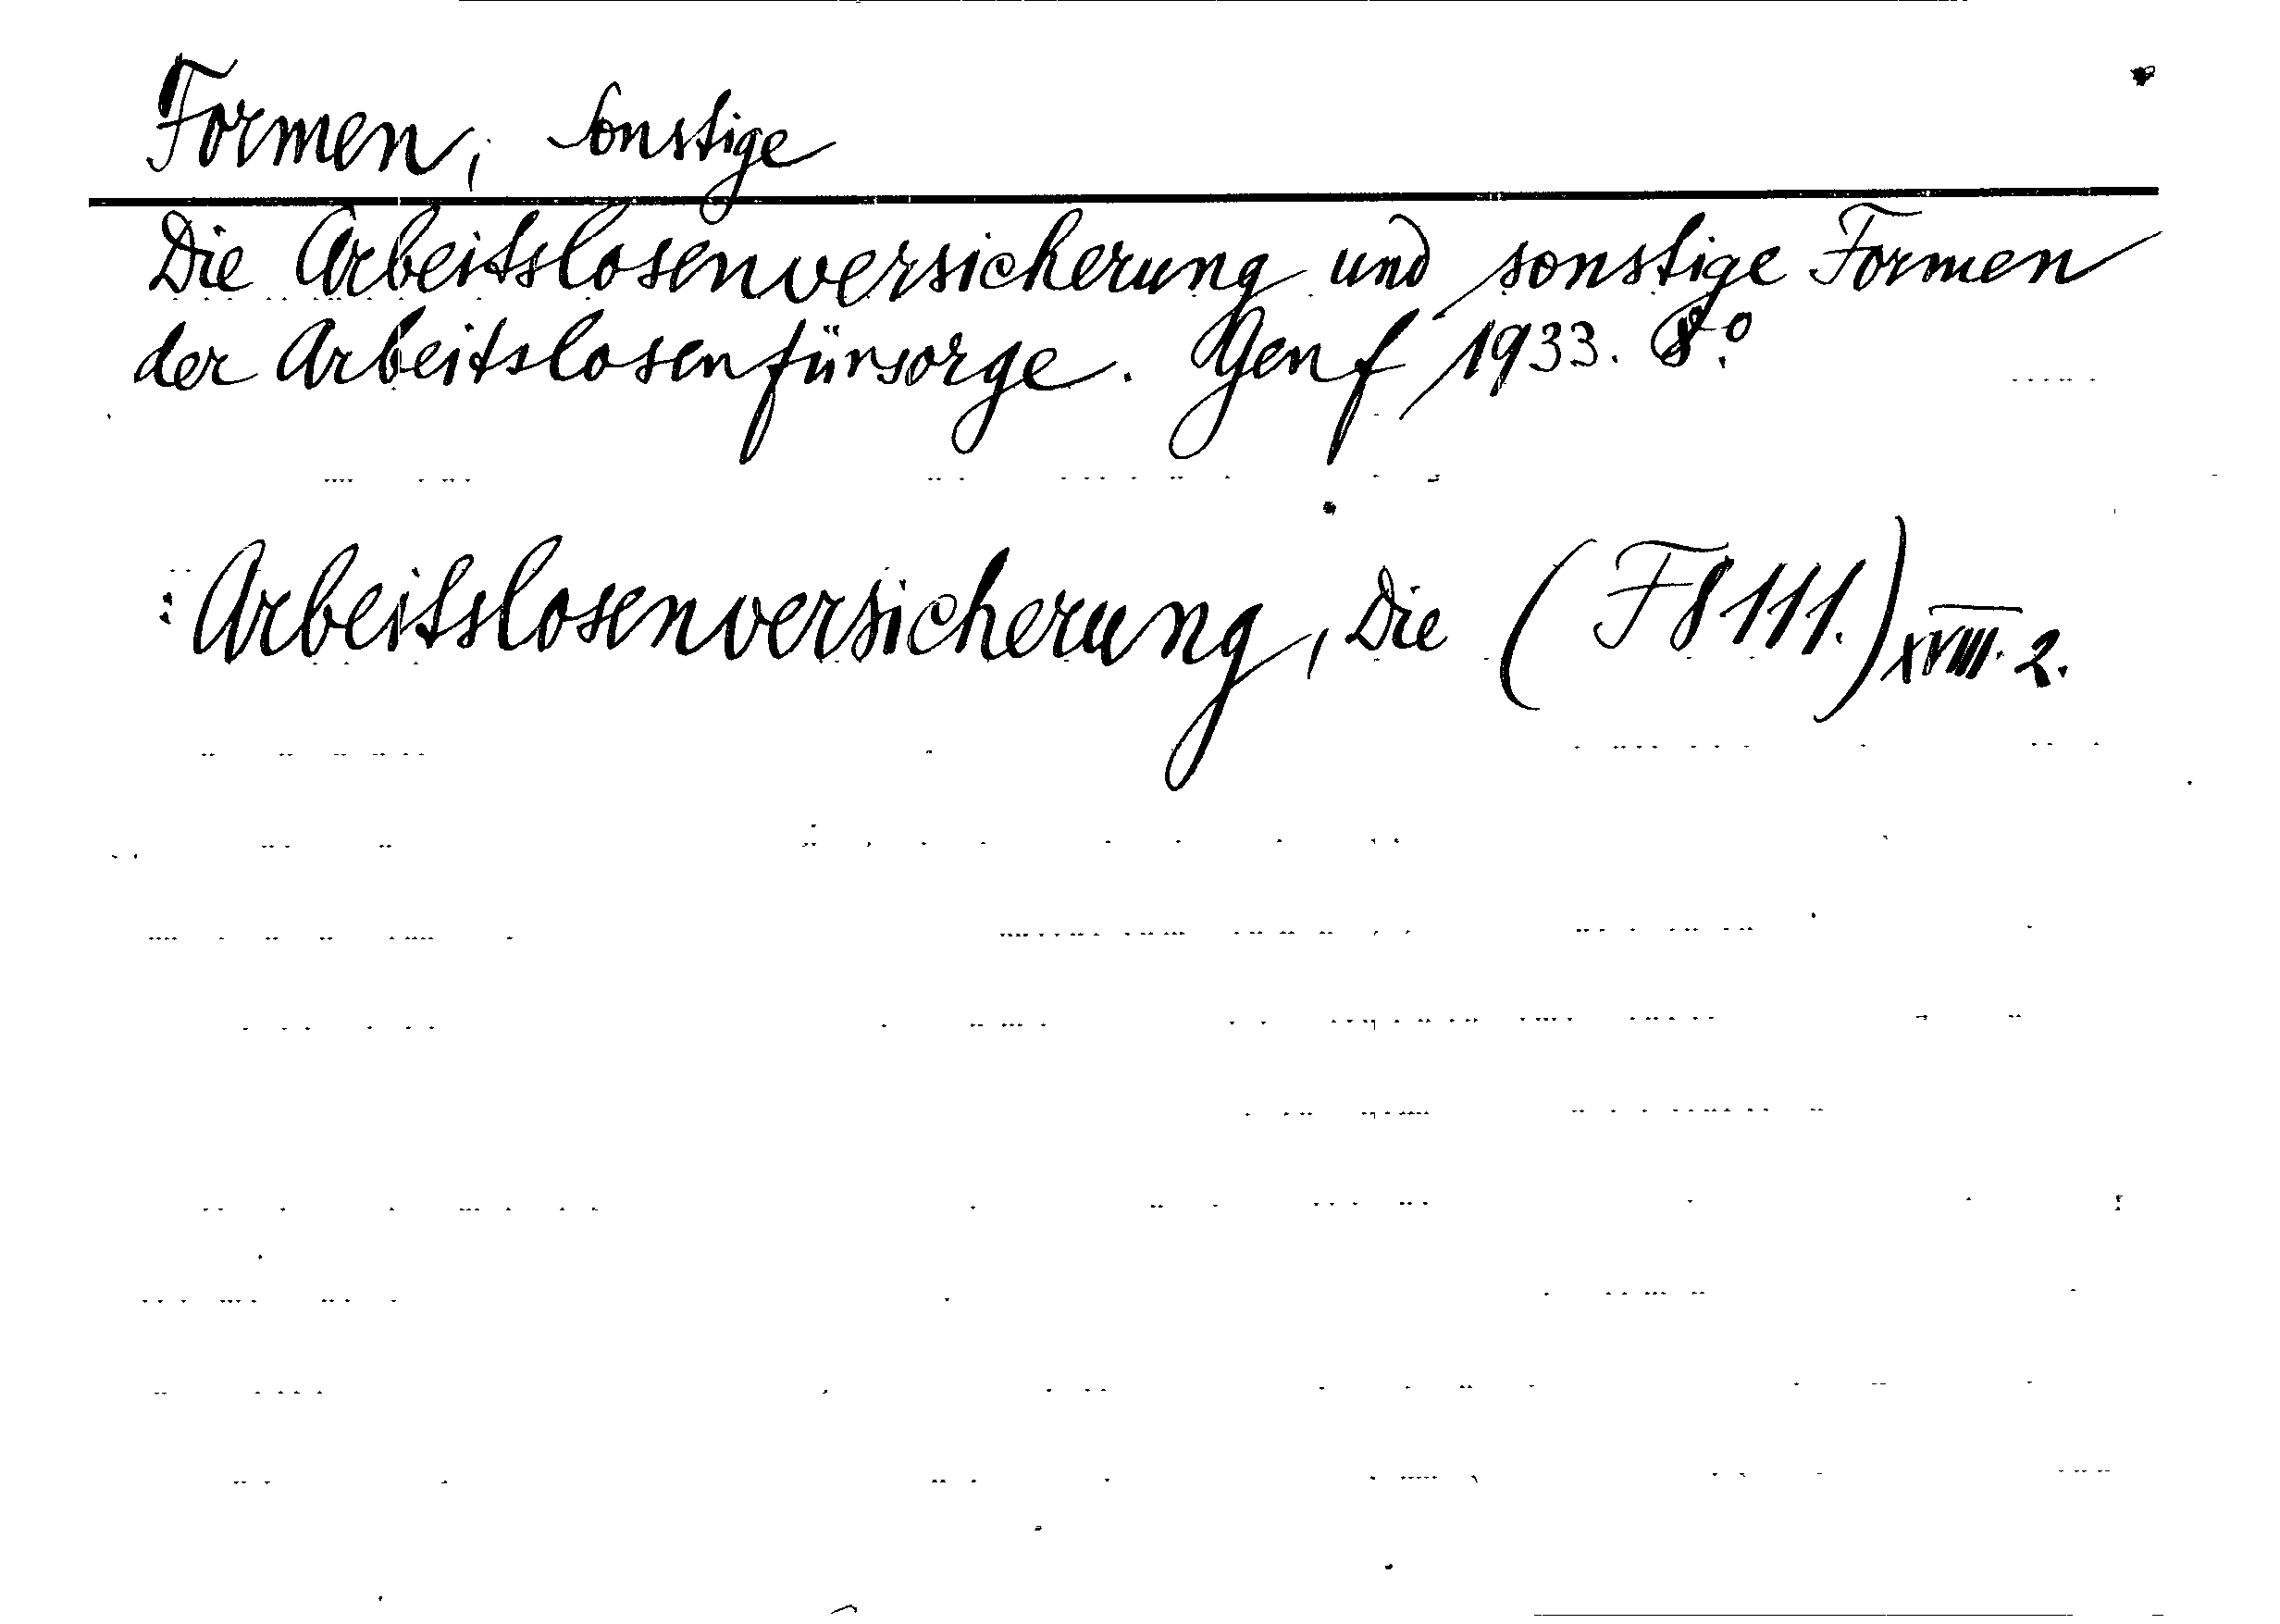 Formen, sonstige
Die Arbeitslosenversicherung und sonstige Formen
der Arbeitslosenfürsorge. Genf 1933. 8°.
: Arbeitslosenversicherung, Die (F 8111.) XVIII. 2.